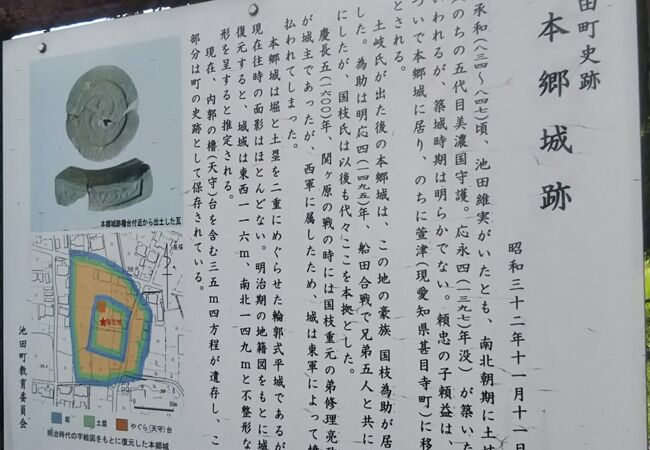 田町史跡
本郷城跡
昭和三十二年十一月十一日
承和(八三四~八四七)頃、池田維実がいたとも、南北朝期に土岐
のちの五代目美濃国守護。応永四(一三九七)年没)が築いた
いわれるが、築城時期は明らかでない。頼忠の子頼益は、
ついで本郷城に居り、のちに萱津(現愛知県甚目寺町)に移
とされる。
土岐氏が出た後の本郷城は、この地の豪族 国枝為助が居
した。為助は明応四(一四九五)年、船田合戦で兄弟五人と共に
にしたが、国枝氏は以後も代々ここを本拠とした。
慶長五(一六〇〇)年、関ヶ原の戦の時には国枝重元の弟修理亮
が城主であったが、西軍に属したため、城は東軍によって焼
払われてしまった。
本郷城は堀と土塁を二重にめぐらせた輪郭式平城であるが
現在往時の面影はほとんどない。明治期の地籍図をもとに城
復元すると、城域は東西一一六m、南北一四九mと不整形な
形を呈すると推定される。
現在、内郭の櫓(天守)台を含む三五m四方程が遺存し、こ
部分は町の史跡として保存されている。
池田町教育委員会
本郷城跡櫓台付近から出土した瓦
現在地
50m
堀 土塁 やぐら(天守)台
明治時代の字絵図をもとに復元した本郷城